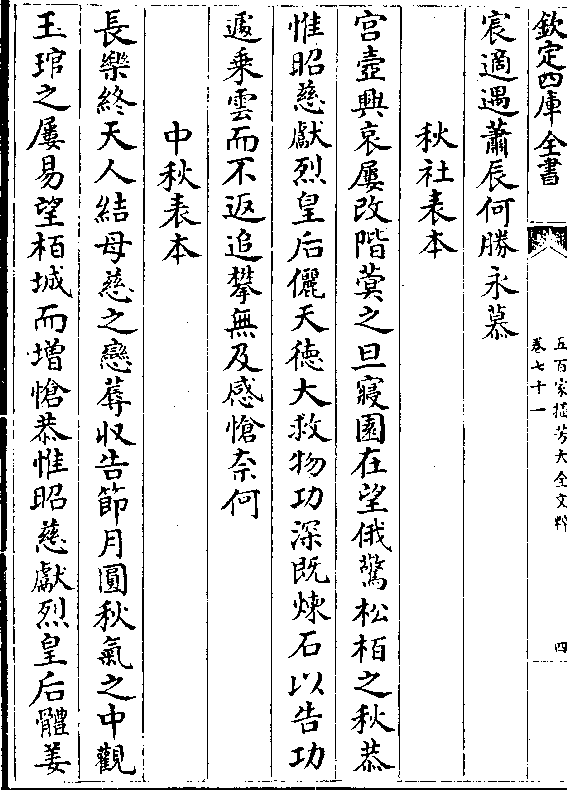 欽定四庫全書
五百家播芳大全文粹
卷七十一
四
宸適遇蕭辰何勝永慕
秋社表本
宮壼興哀屢改階蓂之旦寢園在望俄驚松栢之秋恭
惟昭慈獻烈皇后儷天德大救物功深既煉石以告功
遽乗雲而不返追攀無及感愴奈何
中秋表本
長樂終天人結母慈之戀蓐收告節月圓秋氣之中觀
玉琯之屢易望栢城而增愴恭惟昭慈獻烈皇后體姜